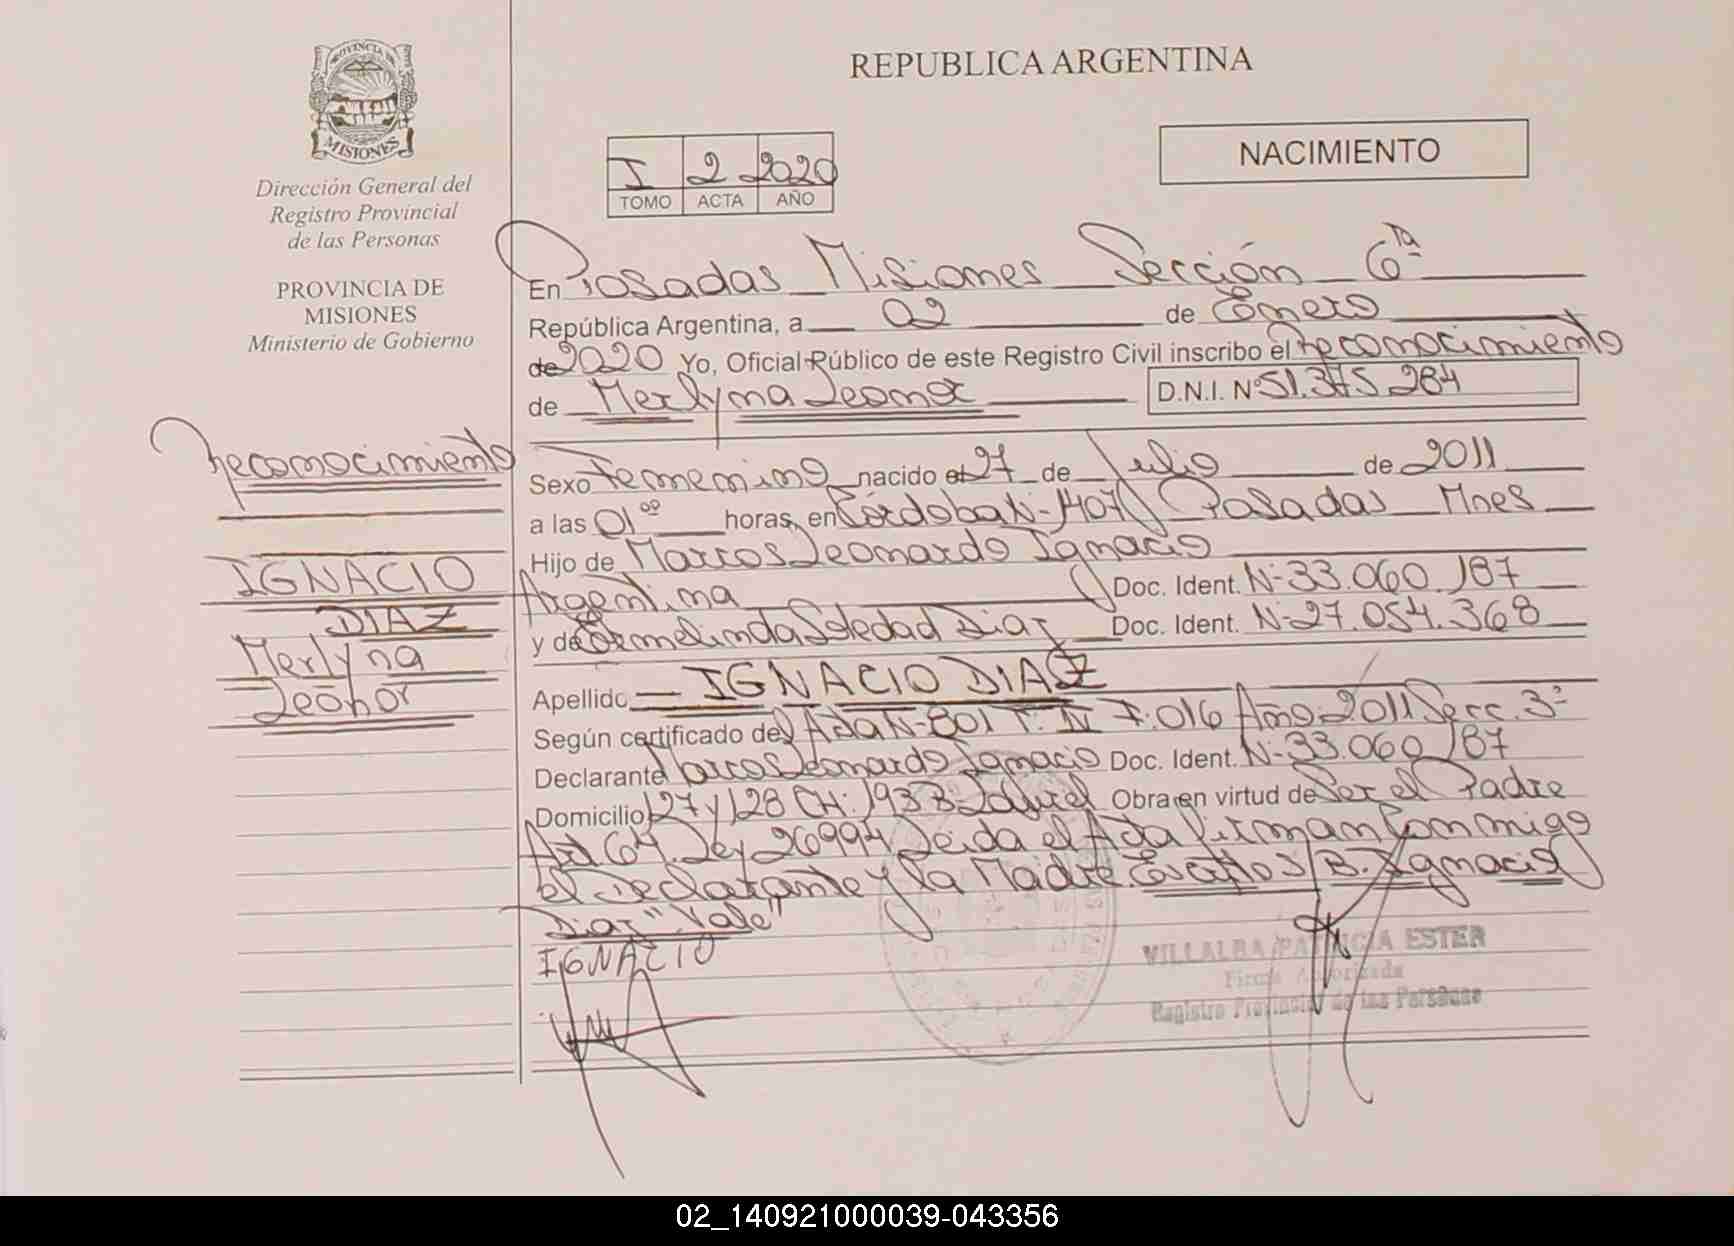 PROVINCIA DE
MISIONES
Dirección General del
Registro Provincial
de las Personas
PROVINCIA DE
MISIONES
Ministerio de Gobierno
Reconocimiento
IGNACIO
DIAZ
Merlyna
Leonor
REPUBLICA ARGENTINA
I 2 2020
TOMO ACTA AÑO
NACIMIENTO
En Posadas Misiones Sección 6ta
República Argentina, a 02 de Enero
de 2020 Yo, Oficial Público de este Registro Civil inscribo el reconocimiento
de Merlyna Leonor D.N.I. Nº 51.375.284
Sexo Femenino nacido el 27 de Julio de 2011
a las 01ºº horas, en Córdoba Nº 1407 Posadas Mnes
Hijo de Marcos Leonardo Ignacio
Argentina Doc. Ident. Nº 33.060.187
y de Ermelinda Soledad Diaz Doc. Ident. Nº 27.054.368
Apellido IGNACIO DIAZ
Según certificado del Acta Nº 801 T: IV F: 016 Año: 2011 Secc. 3ª
Declarante Marcos Leonardo Ignacio Doc. Ident. Nº 33.060.187
Domicilio 127 y 128 CH: 193 Bº Obra en virtud de Ser el Padre
Art 64. Ley 26994 Leida el Acta firman Conmigo
el Declarante y la Madre. Escrito S/B. Ignacio
Diaz "Vale"
IGNACIO
VILLALBA PATRICIA ESTER
Firma Autorizada
Registro Provincial de las Personas
02_140921000039-043356